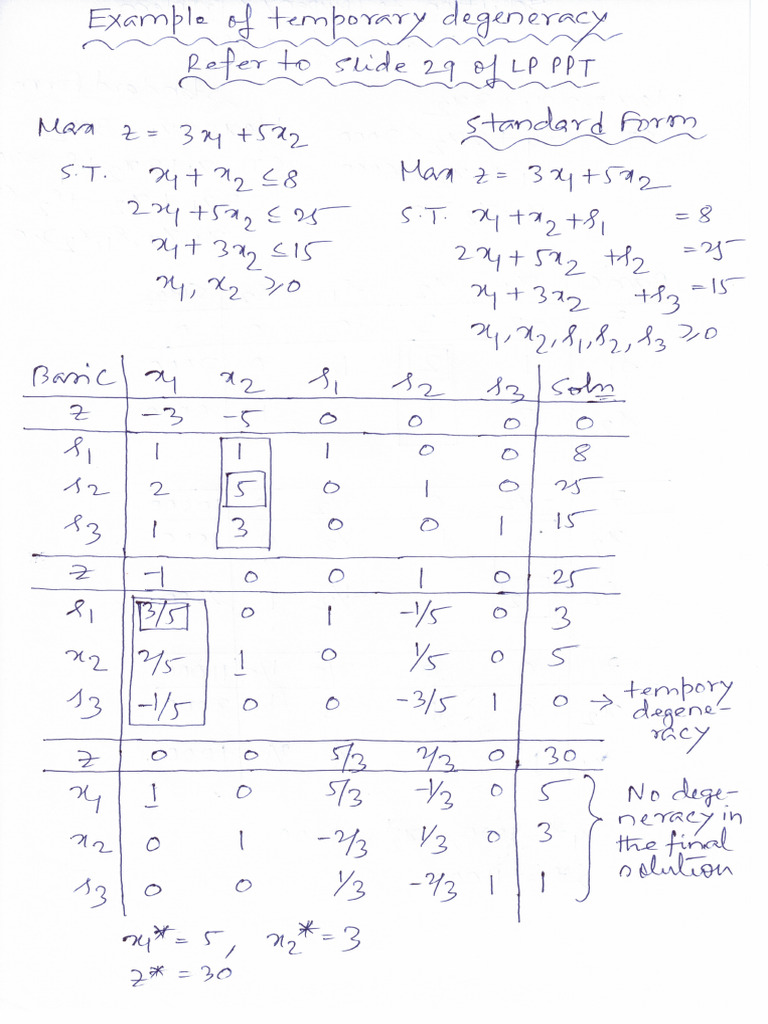 Example of temporary degeneracy
Refer to slide 29 of LP PPT
Max z = 3x1 + 5x2
S.T. x1 + x2 ≤ 8
2x1 + 5x2 ≤ 25
x1 + 3x2 ≤ 15
x1, x2 ≥ 0
Standard Form
Max z = 3x1 + 5x2
S.T. x1 + x2 + s1 = 8
2x1 + 5x2 + s2 = 25
x1 + 3x2 + s3 = 15
x1, x2, s1, s2, s3 ≥ 0
Basic x1 x2 s1 s2 s3 Soln
z -3 -5 0 0 0 0
s1 1 1 1 0 0 8
s2 2 5 0 1 0 25
s3 1 3 0 0 1 15
z -1 0 0 1 0 25
s1 3/5 0 1 -1/5 0 3
x2 2/5 1 0 1/5 0 5
s3 -1/5 0 0 -3/5 1 0 → tempory
degene-
racy
z 0 0 5/3 2/3 0 30
x1 1 0 5/3 -1/3 0 5
x2 0 1 -2/3 1/3 0 3
s3 0 0 1/3 -2/3 1 1
No dege-
neracy in
the final
solution
x1* = 5, x2* = 3
z* = 30